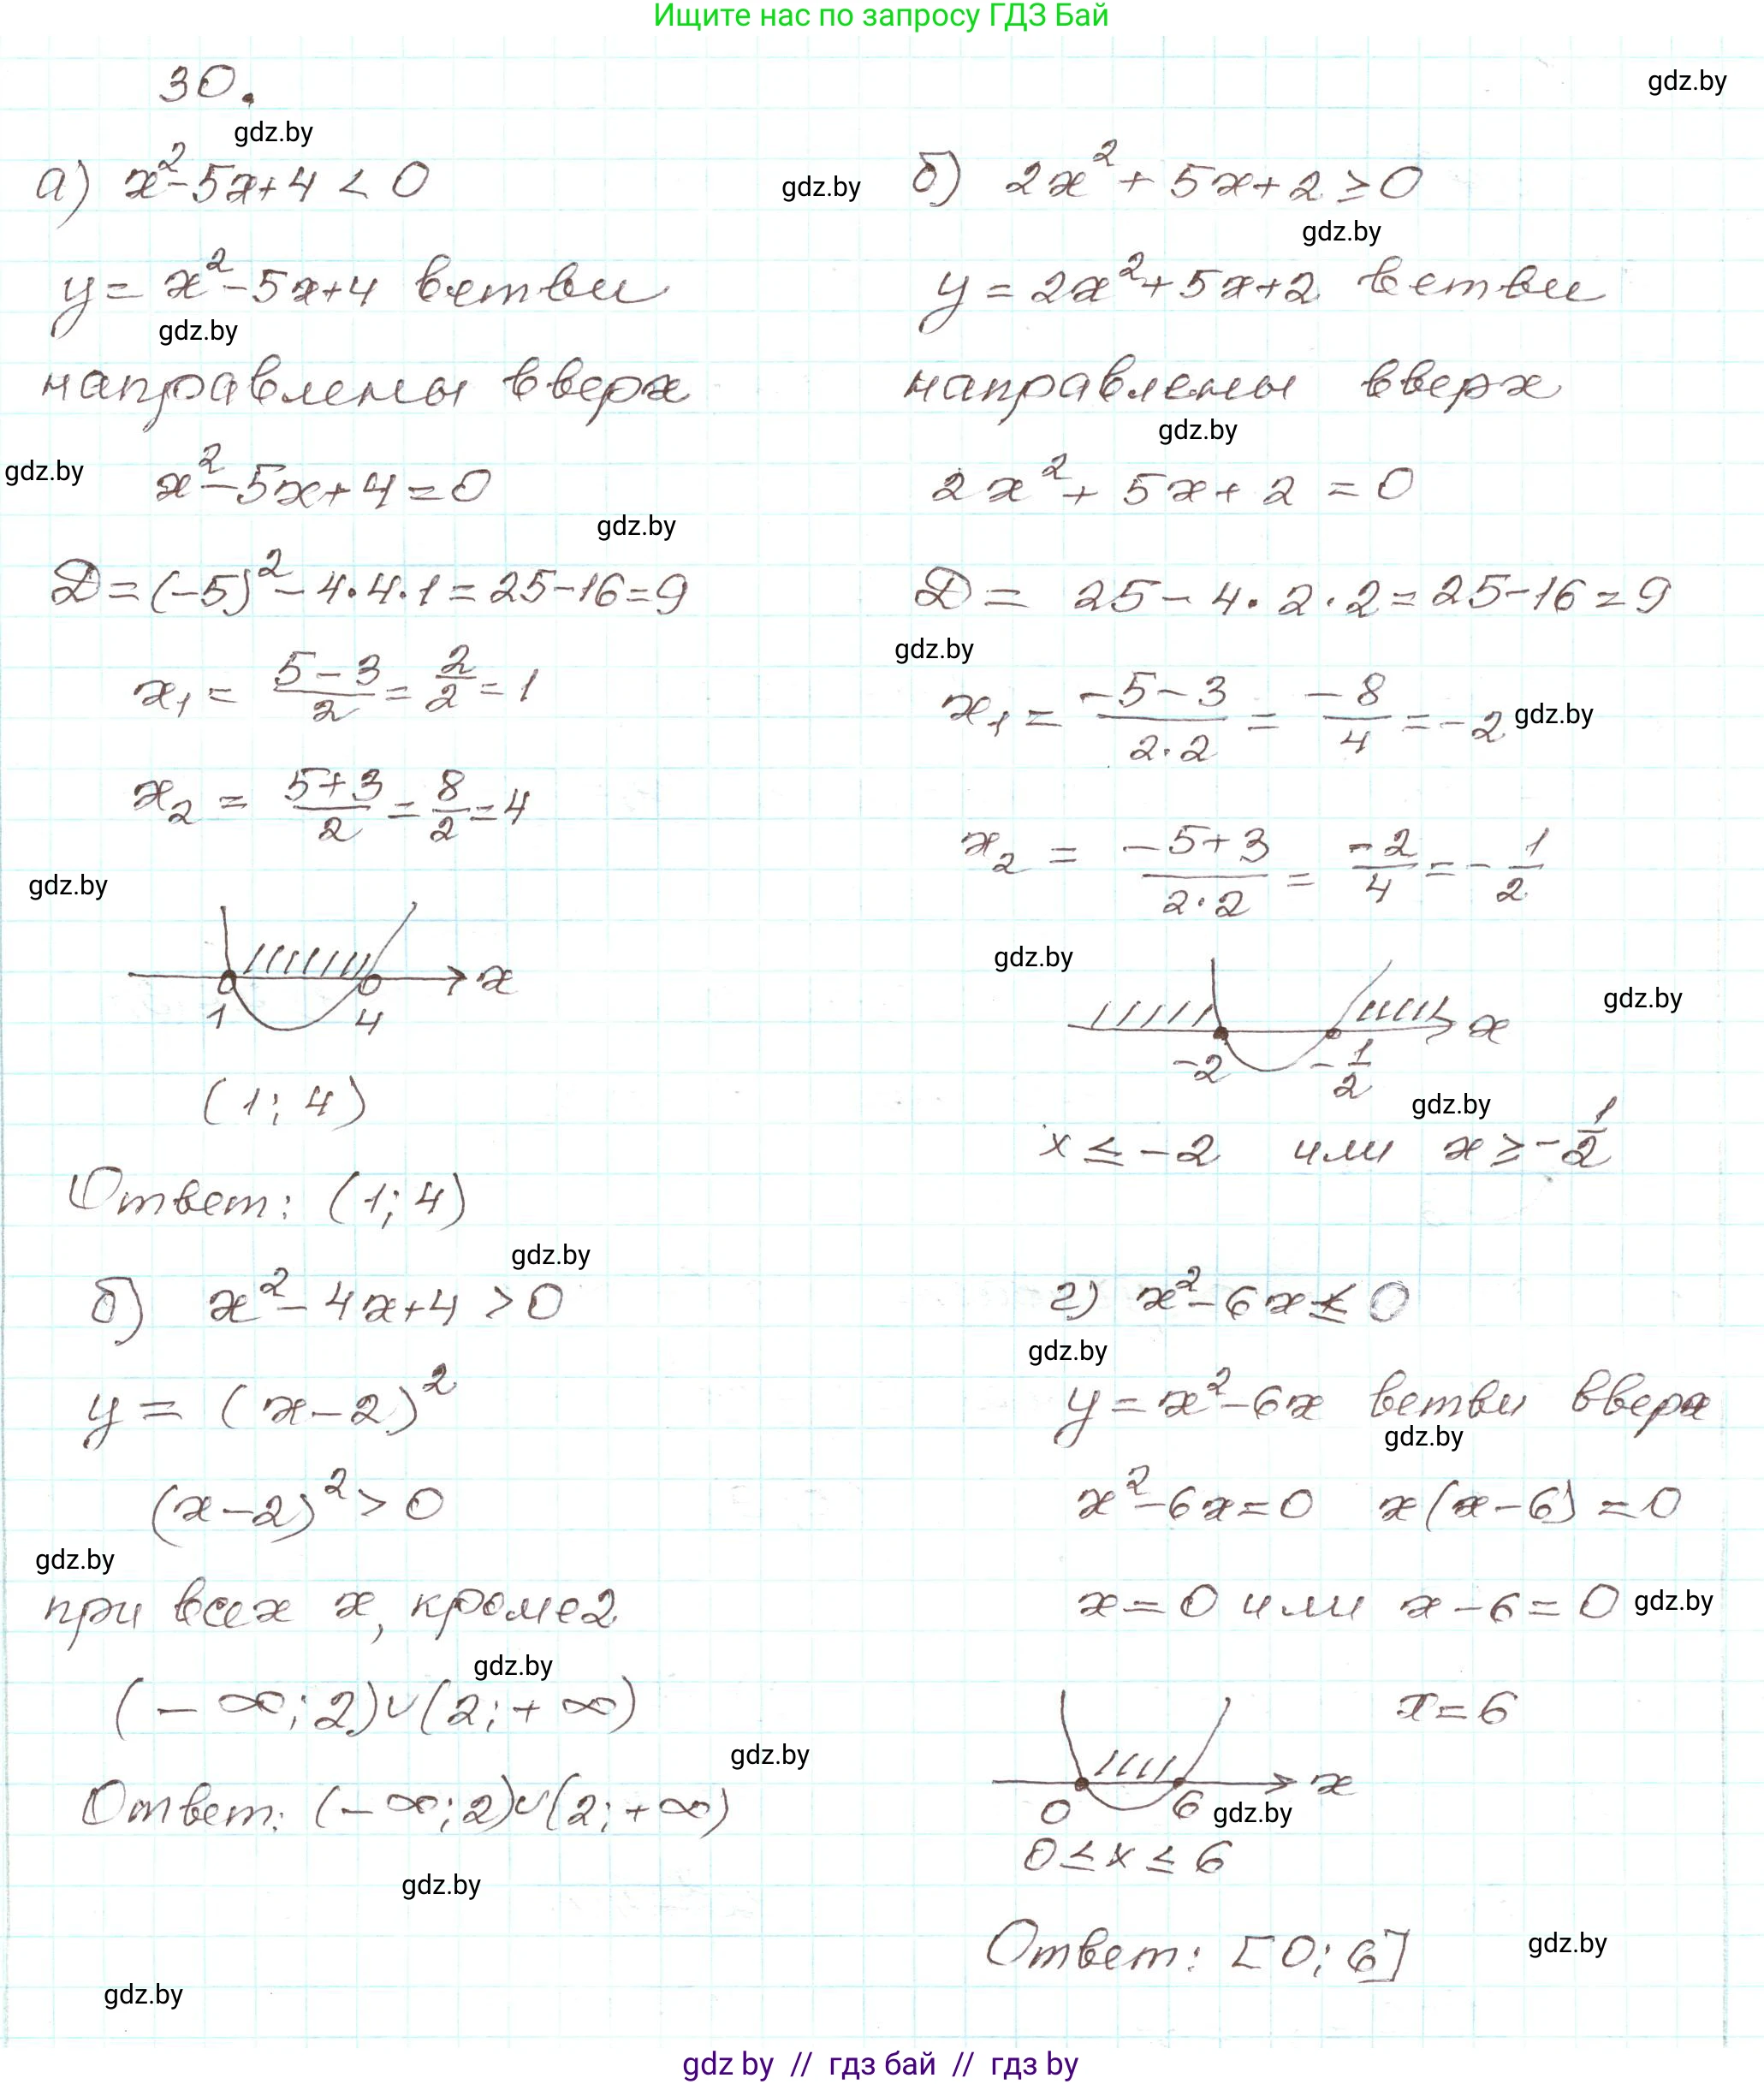 Ищите нас по запросу ГДЗ Бай
30.
gdz.by
gdz.by
а) x²-5x+4 < 0
y = x²-5x+4 ветви
gdz.by
направлены вверх
gdz.by
x²-5x+4=0
gdz.by
D=(-5)²-4·4·1=25-16=9
x₁ = (5-3)/2 = 2/2 = 1
x₂ = (5+3)/2 = 8/2 = 4
gdz.by
x
1 4
(1; 4)
Ответ: (1; 4)
gdz.by
gdz.by
б) 2x² + 5x+2 ≥ 0
gdz.by
y = 2x²+5x+2 ветви
направлены вверх
gdz.by
2x²+ 5x+ 2 = 0
D = 25 - 4·2·2 = 25-16 = 9
gdz.by
x₁ = (-5-3)/(2·2) = -8/4 = -2
gdz.by
x₂ = (-5+3)/(2·2) = -2/4 = -1/2
gdz.by
gdz.by
x
-2 -1/2
gdz.by
x ≤ -2 или x ≥ -1/2
б) x²- 4x+4 > 0
y = (x-2)²
(x-2)² > 0
gdz.by
при всех x, кроме 2
gdz.by
(-∞; 2)∪(2; +∞)
gdz.by
Ответ: (-∞; 2)∪(2; +∞)
gdz.by
gdz.by
г) x²-6x ≤ 0
gdz.by
y = x²-6x ветви вверх
gdz.by
x²-6x=0 x(x-6)=0
x=0 или x-6=0
gdz.by
x=6
x
0 6
gdz.by
0 ≤ x ≤ 6
Ответ: [0; 6]
gdz.by
gdz by // гдз бай // гдз by